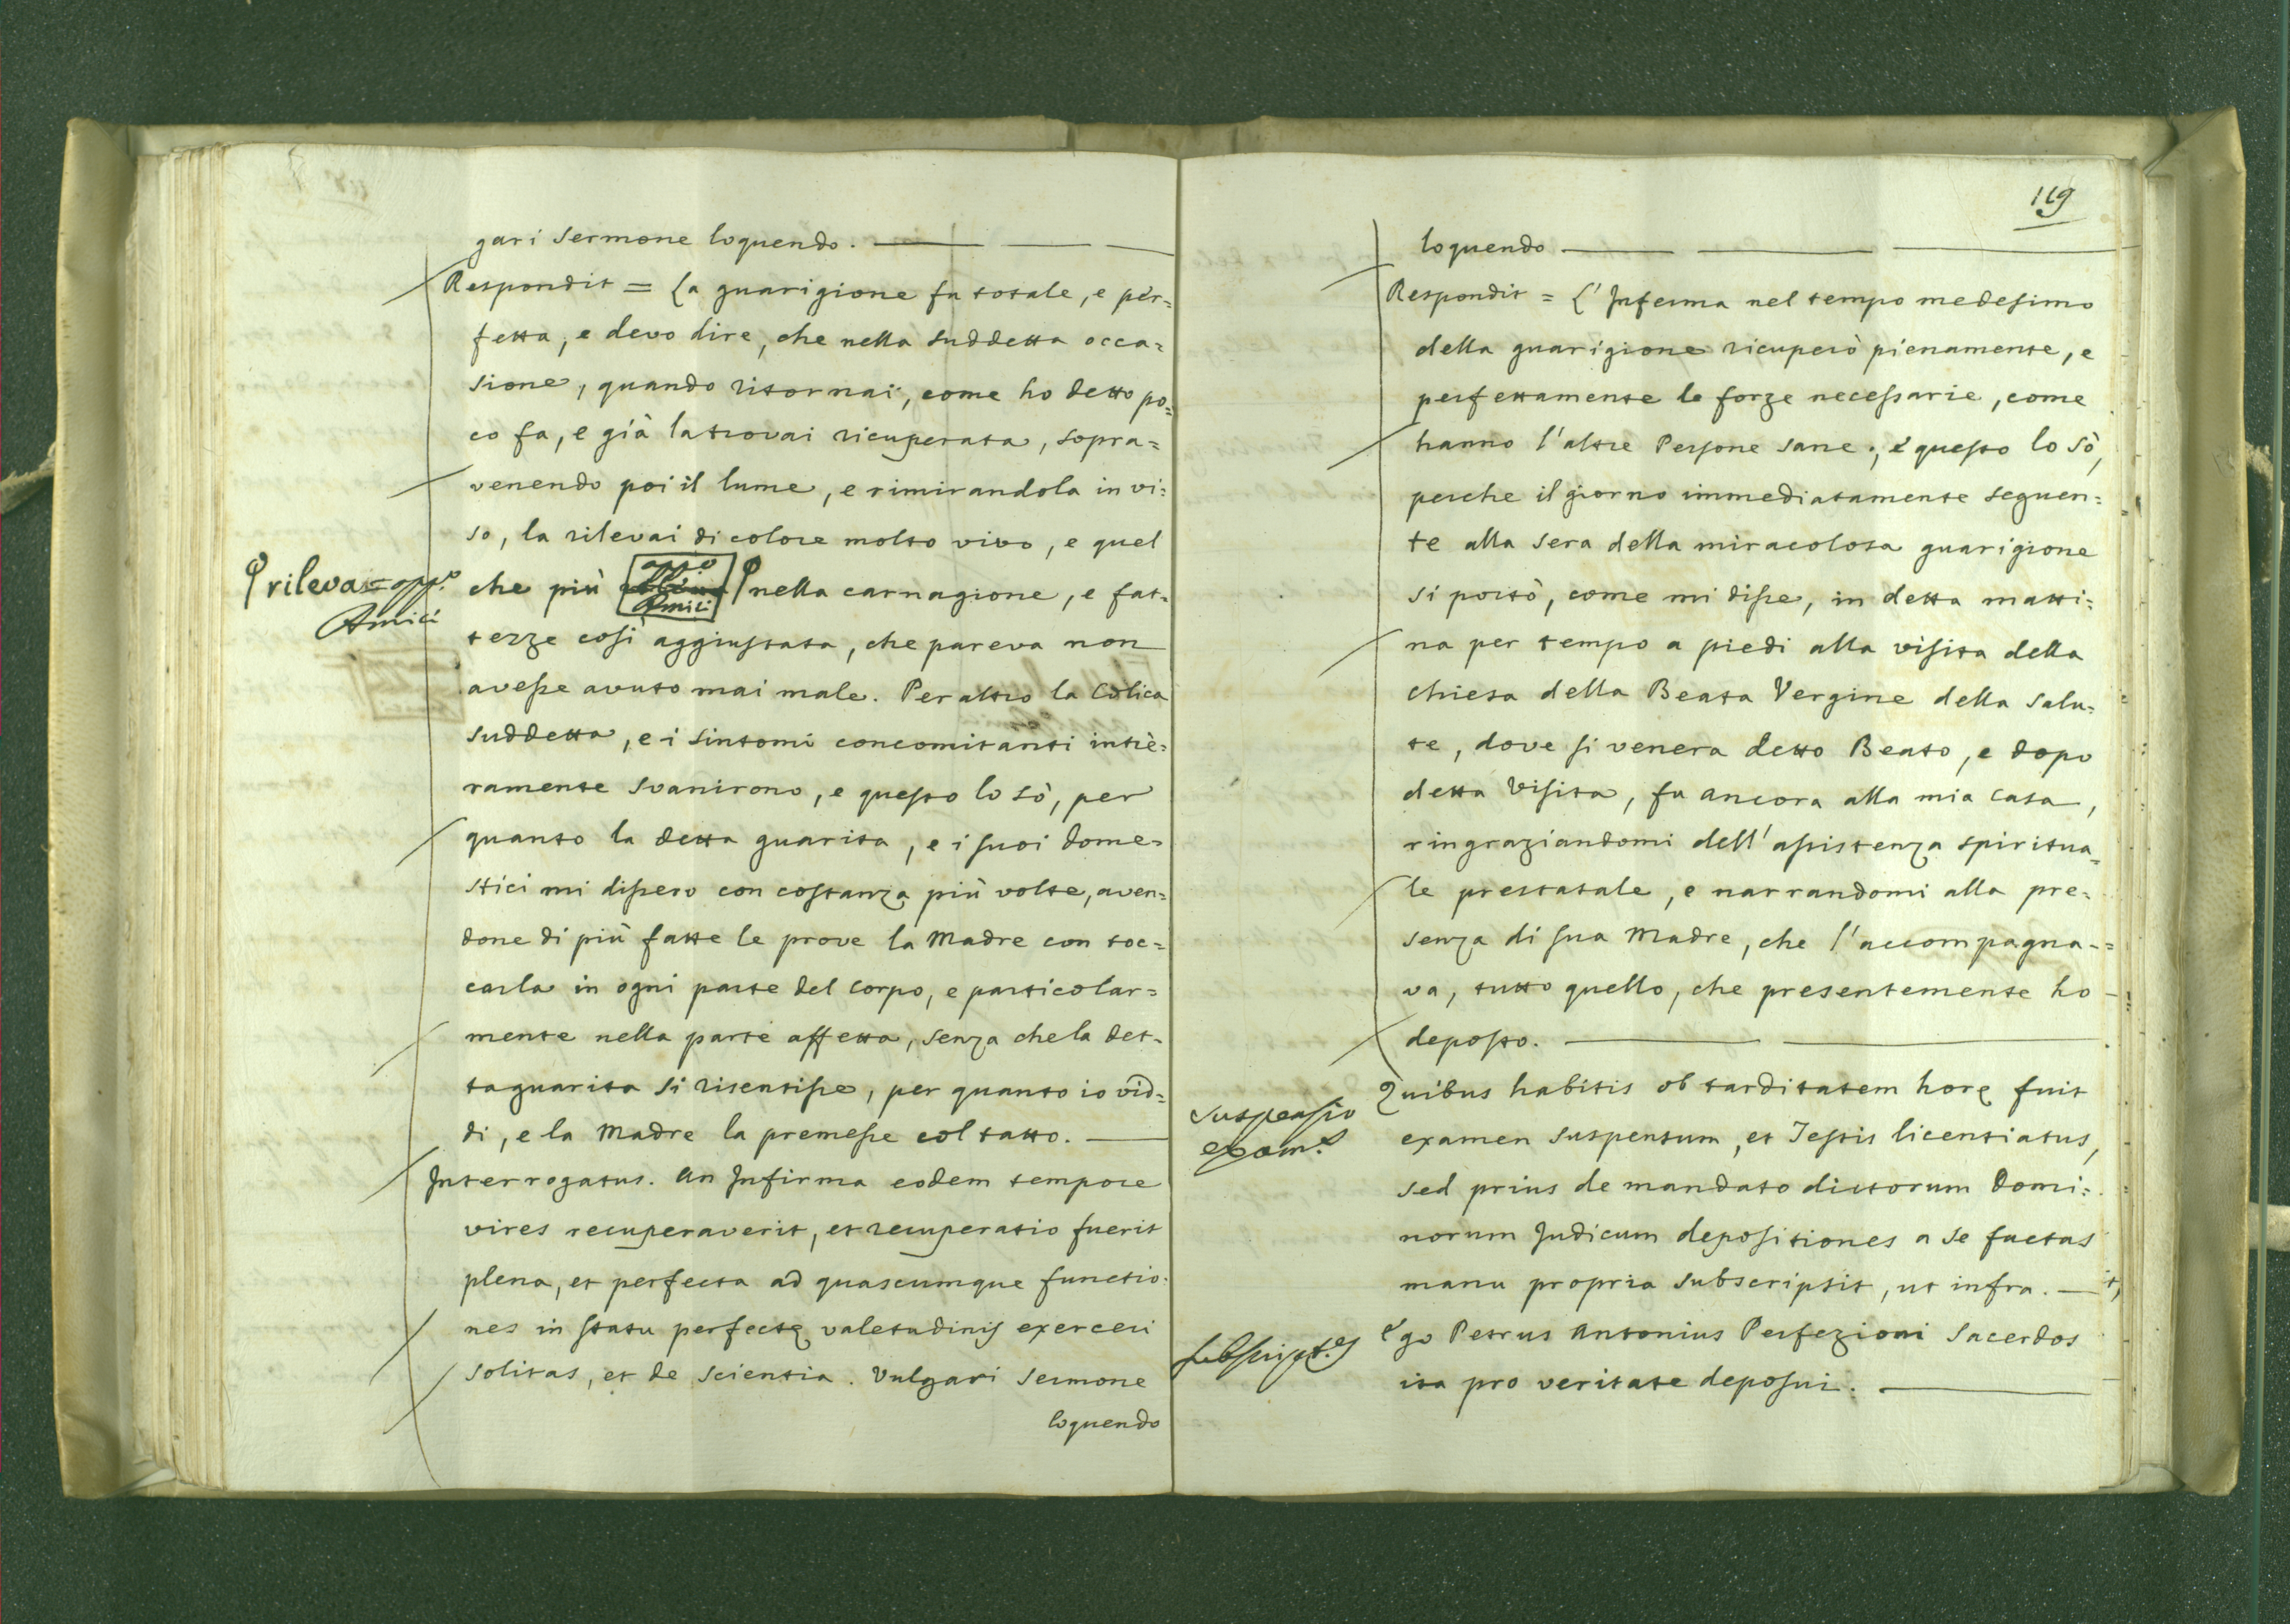 gari Sermone loquendo.
Respondit = La guarigione fu totale, e per=
fetta, e devo dire, che nella suddetta occa=
sione, quando ritornai, come ho detto po=
co fa, e già la trovai ricuperata, sopra=
venendo poi il lume, e rimirandola in vi=
so, la rilevai di colore molto vivo, e quel
rileva = app.º
Amici
che più appº Amici nella carnagione, e fat=
tezze così aggiustata, che pareva non
avesse avuto mai male. Per altro la Colica
suddetta, e i sintomi concomitanti intie=
ramente svanirono, e questo lo sò, per
quanto la detta guarita, e i suoi Dome=
stici mi dissero con costanza più volte, aven=
done di più fatte le prove la Madre con toc=
carla in ogni parte del Corpo, e particolar=
mente nella parte affetta, senza che la det=
ta guarita si risentisse, per quanto io vid=
di, e la Madre la premesse col tatto.
Interrogatus. An Infirma eodem tempore
vires recuperaverit, et recuperatio fuerit
plena, et perfecta ad quascumque functio=
nes in statu perfectę valetudinis exerceri
solitas, et de scientia. Vulgari Sermone
loquendo
119
loquendo
Respondit = L'Inferma nel tempo medesimo
della guarigione ricuperò pienamente, e
perfettamente le forze necessarie, come
hanno l'altre Persone sane; e questo lo sò,
perche il giorno immediatamente seguen=
te alla sera della miracolosa guarigione
si portò, come mi disse, in detta matti=
na per tempo a piedi alla visita della
chiesa della Beata Vergine della Salu=
te, dove si venera detto Beato, e dopo
detta Visita, fu ancora alla mia casa,
ringraziandomi dell'assistenza spiritua=
le prestatale, e narrandomi alla pre=
senza di sua Madre, che l'accompagna=
va, tutto quello, che presentemente ho
deposto.
Quibus habitis ob tarditatem horę fuit
Suspensio
exam.s
examen suspensum, et Testis licentiatus,
sed prius de mandato dictorum Domi=
norum Judicum depositiones a se factas
manu propria subscripsit, ut infra.
Subscript.es
Ego Petrus Antonius Perfezioni Sacerdos
ita pro veritate deposui.